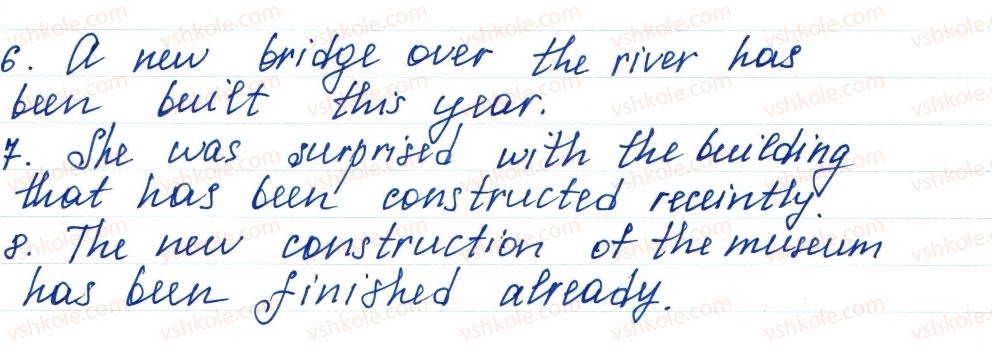 6. A new bridge over the river has
been built this year.
7. She was surprised with the building
that has been constructed receintly.
8. The new construction of the museum
has been finished already.